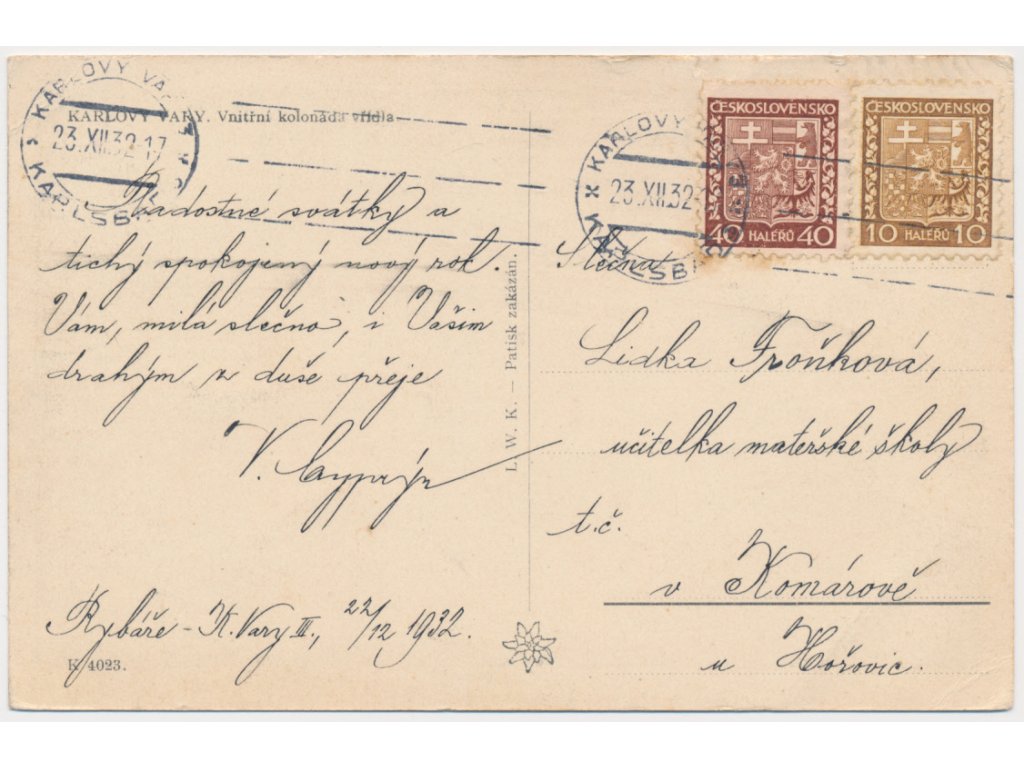 KARLOVY VARY
23.XII.32-17
KARLSBAD
KARLOVY VARY. Vnitřní kolonáda vřídla
Radostné svátky a
tichý spokojený nový rok.
Vám, milá slečno, i Vašim
drahým z duše přeje
V.
Rybáře - K. Vary III., 22/12 1932.
K 4023.
L. W. K. — Patisk zakázán.
KARLOVY
23.XII.32
KARLSBAD
ČESKOSLOVENSKO
40 HALÉŘŮ 40
ČESKOSLOVENSKO
10 HALÉŘŮ 10
Slečna
Lidka Froňková,
učitelka mateřské školy
t.č.
v Komárově
u Hořovic.